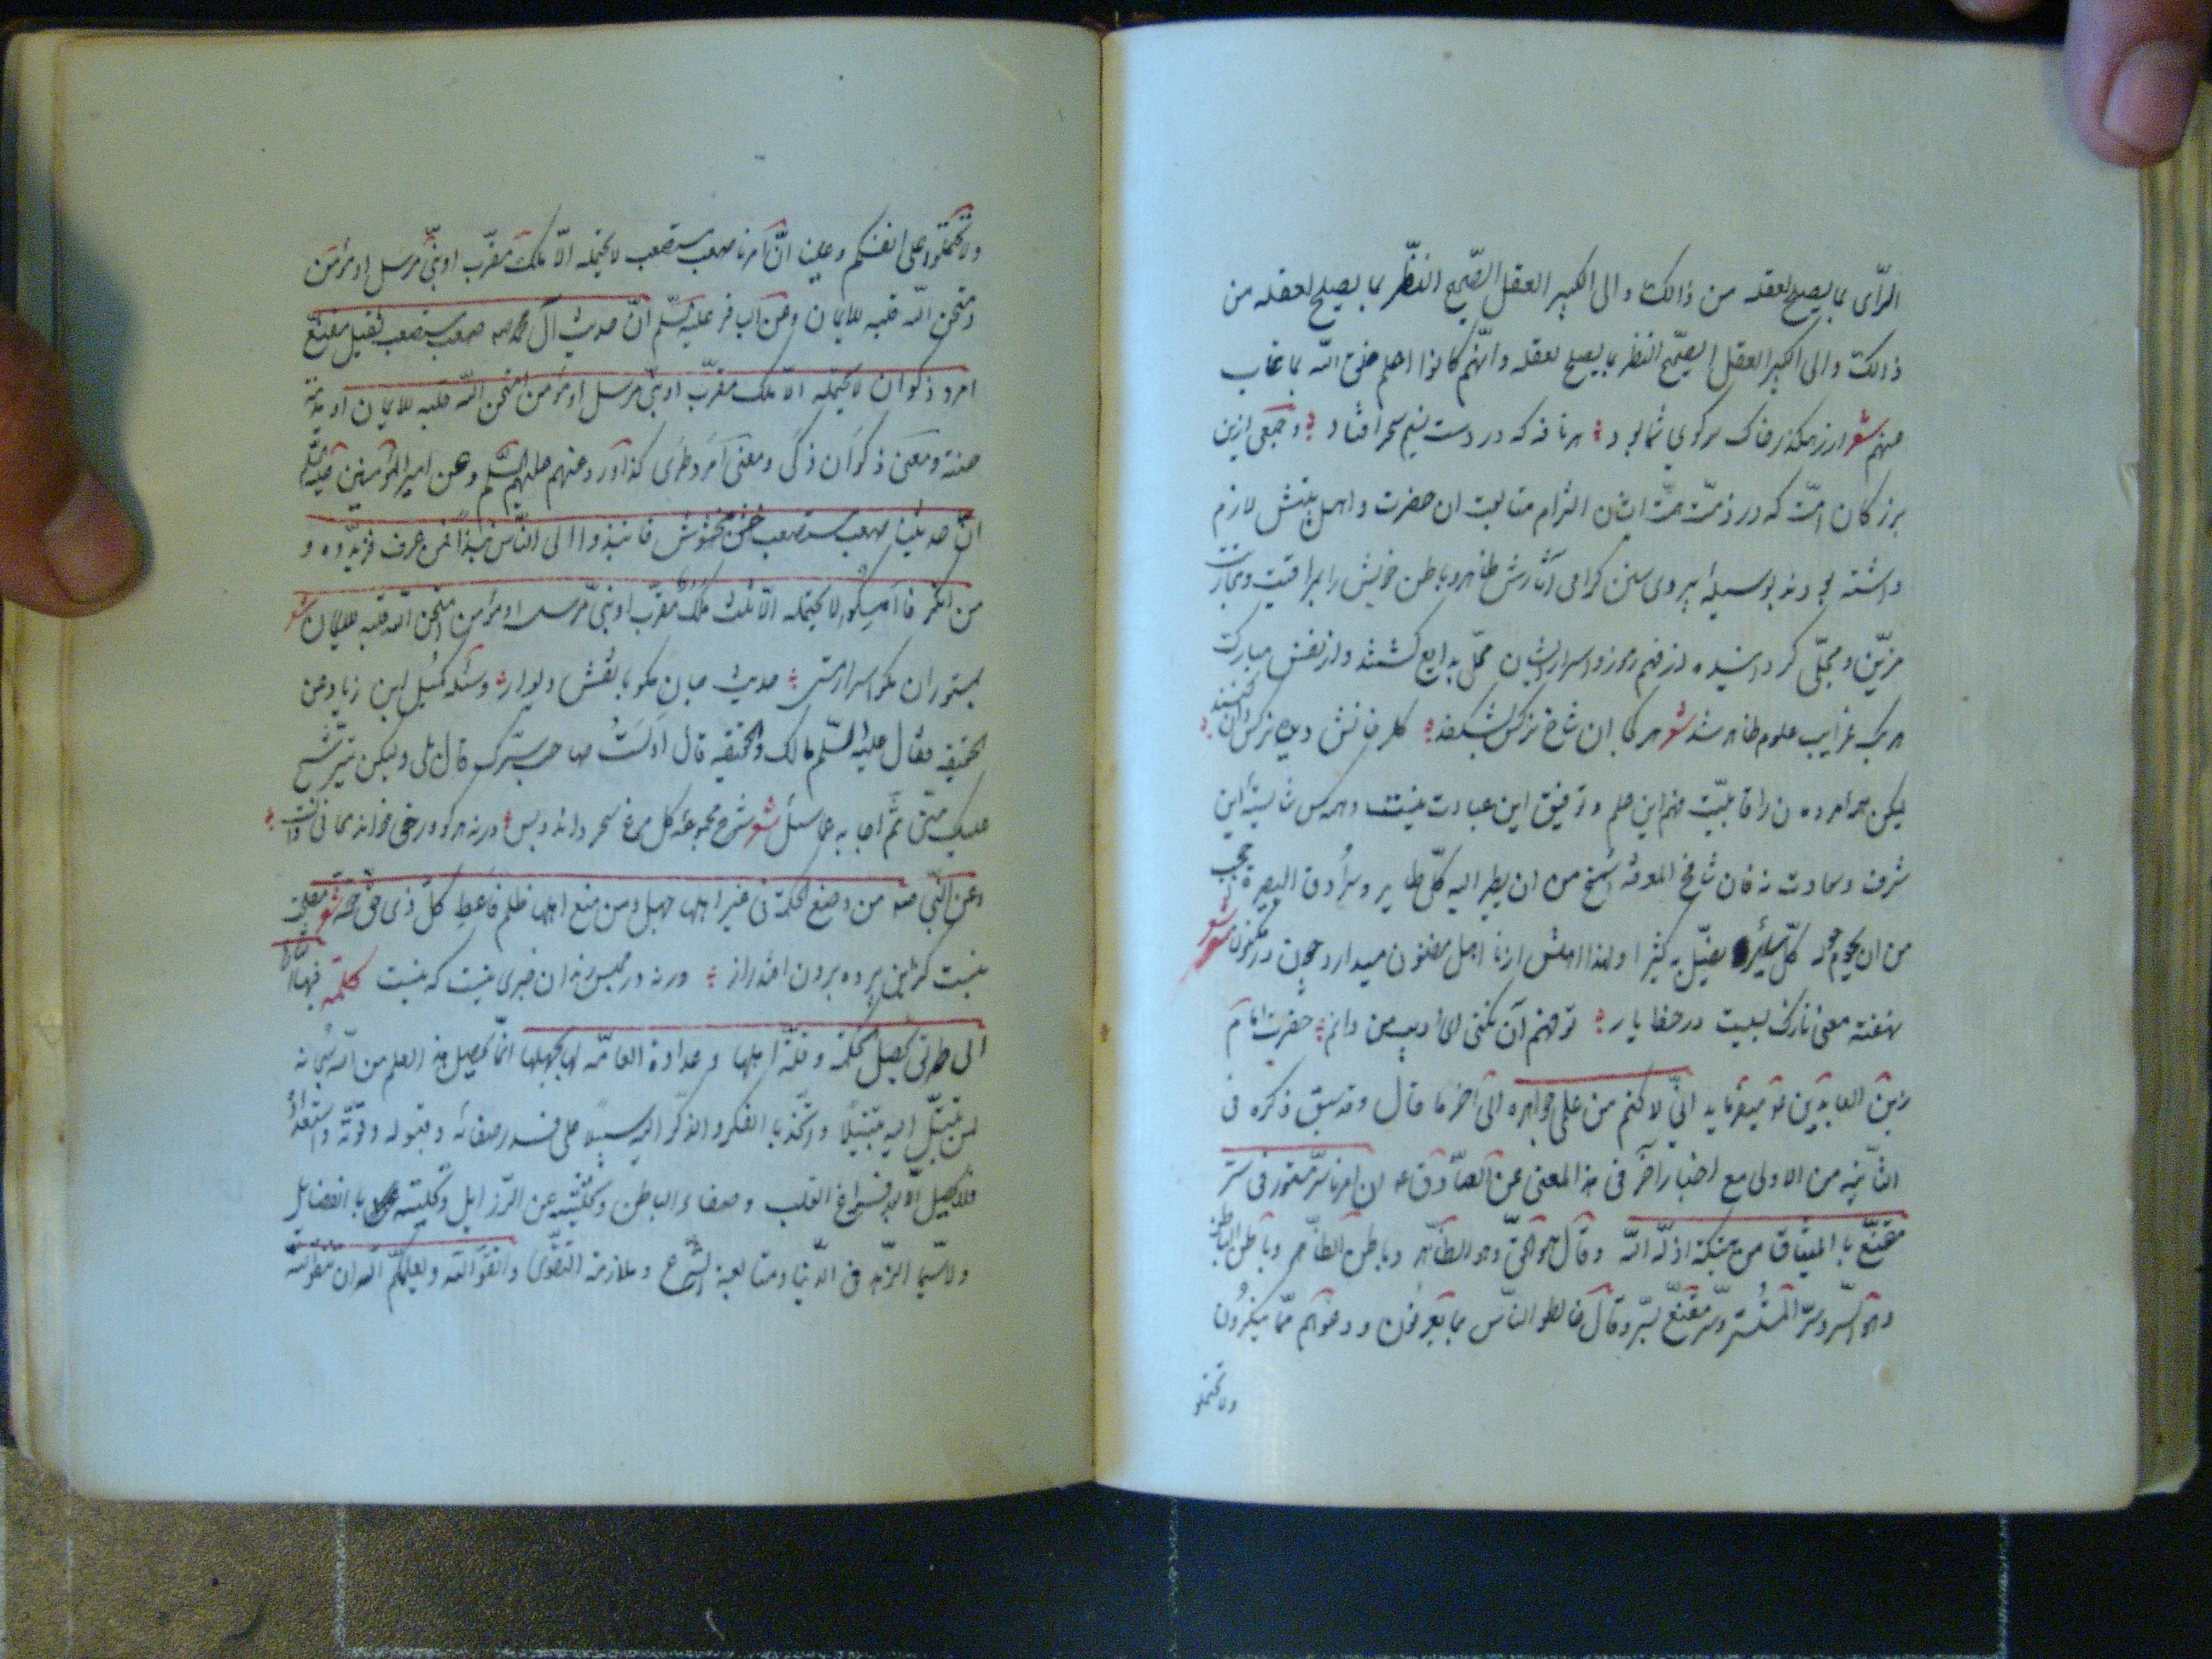 الرّای بما یصیح لعقله من ذالک و الی الکبیر العقل الصّحیح النّظر بما یصلح لعقله من
ذلک و الی الکبیر العقل الصحیح النظر بما یصیح لعقله و انّهم کانوا اعلم خلق اللّه بما غاب
عنهم شعر از رهکذر خاک سر کوی شما بود هر نافه که در دست نسیم سحر افتاد و جمعی ازین
بزرکان امّت که در ذمّت همّت ایشان التزام متابعت ان حضرت و اهل بیتش لازم
داشته بودند بوسیله پیروی سنن کرامی آثارش ظاهر و باطن خویش را بمراقبت و
مزیّن و مجلّی کردانیده از فهم رموز و اسرار ایشان کشتند و از نفس مبارک
هر یک غرایب علوم ظاهر شد شعر هر کجا ان شاخ نرکس بشکفد کلرخانش دیده نرکس دان کنند
لیکن همه مردمان را قابلیّت فهم این علم و توفیق این عبادت نیست و هر کس شایسته این
شرف و سعادت نه فان شامخ المعرفة اشمخ من ان یطیر الیه کلّ طایر و سرادق البصیرة احجب
من ان یحوم حوله کلّ سایر یضلّ به کثیرا و لهذا اهلش از نا اهل مضنون میدارد چون در مکنون شعر
نهفته معنی نازک بسیست در خط یار تو فهم آن نکنی ای ادیب من دانم حضرت امام
زین العابدین میفرماید انّی لاکتم من علمی جواهره الی آخر ما قال و قد سبق ذکره فی
الثانیه من الاولی مع اخبار آخر فی هذا المعنی عن الصّادق ان امرنا سرّ مستور فی سرّ
مقنّع بالمیثاق من هتکه اذلّه اللّه و قال هو الحقّ و هو الظّاهر و باطن الظّاهر و باطن الباطن
و هو السّر و سرّ المستسر و سرّ مقنّع بسرّ و قال خالطو النّاس بما یعرفون و دعوهم ممّا ینکرون
ولا تحملو
ولا تحملوه علی انفسکم و علینا انّ امرنا صعب مستصعب لا یحتمله الّا ملک مقرّب او نبیّ مرسل او مؤمن
امتحن اللّه قلبه للایمان و عن علیه السّلم انّ حدیث آل محمد صعب مستصعب ثقیل مقنّع
امرد ذکوان لا یحتمله الّا ملک مقرّب او نبیّ مرسل او مؤمن امتحن اللّه قلبه للایمان او مدینة
حصینة و معنی ذکوان ذکی و معنی امرد طری کذا ورد عنهم علیهم السّلم و عن امیر المؤمنین علیه السّلم
انّ حدیثنا صعب مستصعب خشن مخشوش فانبذوا الی النّاس نبذا فمن عرف فزیدوه و
من انکر فامسکوا لا یحتمله الّا ثلث ملک مقرّب او نبیّ مرسل او مؤمن امتحن اللّه قلبه للایمان شعر
بمستوران مکو اسرار مستی حدیث جان مکو با نقش دیوار و سئل کمیل ابن زیاد عن
الحقیقه فقال علیه السّلم مالک و الحقیقه قال او لست صاحب سرّک قال بلی و لکن یترشّح
علیک منّی ثمّ اجابه عما سئل شعر شرح مجموعه کل مرغ سحر داند و بس که نه هر کو ورقی خواند معانی دانست
و عن النّبی من وضع الحکمة فی غیر اهلها جهل و من منع اهلها ظلم فاعط کلّ ذی حقّ حقّه شعر مصلحت
نیست که از پرده برون افتد راز ورنه در مجلس رندان خبری نیست که نیست کلمة فیها اشارة
الی طریق تحصیل الحکمة و قلّة اهلها و عداوة العامّه لها لجهلها انّما یحصیل هذا العلم من اللّه سبحانه
لمن تبتّل الیه تبتیلا و اتّخذ بالفکر و الذّکر الیه سبیلا علی قدر صفائه و قبوله و قوّته و استعداده
فلا یحصیل الّا بفراغ القلب و صفاء الباطن و تخلیته عن الرّذایل و تحلیته بالفضایل
ولا سیّما الزّهد فی الدّنیا و متابعة الشّرع و ملازمة التقّوی و اتّقوا اللّه و یعلّمکم اللّه ان تتقوا اللّه